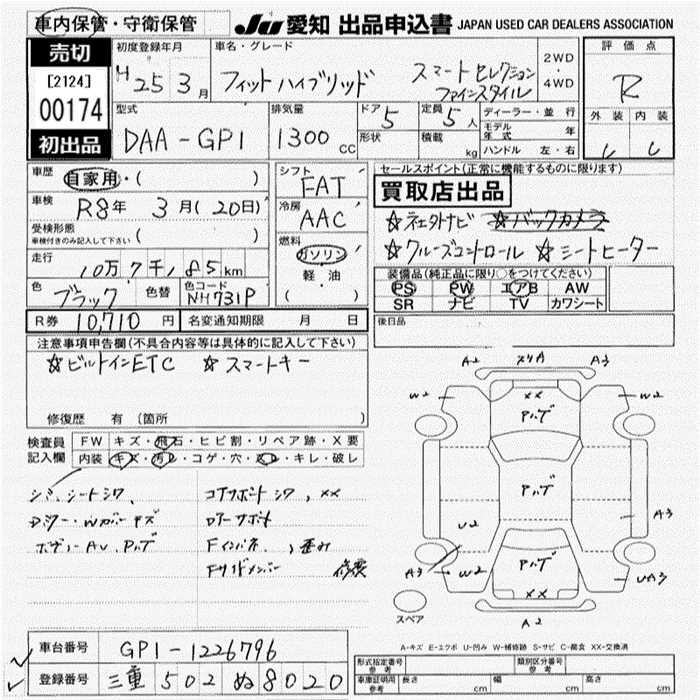 車内保管・守衛保管
JU 愛知 出品申込書 JAPAN USED CAR DEALERS ASSOCIATION
売切
[2124]
00174
初出品
初度登録年月
H25年3月
車名・グレード
フィットハイブリッド スマートセレクション
ファインスタイル
2WD
・
4WD
評価点
R
外装 内装
型式
DAA-GP1
排気量
1300 cc
ドア 5
形状
定員 5人
積載 kg
ディーラー・並行
モデル年式 年
ハンドル 左・右
車歴
自家用・( )
車検
R8年 3月(20日)
受検形態
車検付きのみ記入して下さい ( )
走行
10万7千185km
色
ブラック
色替
色コード
NH731P
シフト
FAT
冷房
AAC
燃料
ガソリン
軽油
( )
R券 10,710円
名変通知期限 月 日
セールスポイント(正常に機能するものに限ります)
買取店出品
☆純正ナビ ☆バックカメラ
☆クルーズコントロール ☆シートヒーター
装備品(純正品に限り○をつけてください)
PS PW エアB AW
SR ナビ TV カワシート
後日品
注意事項申告欄(不具合内容等は具体的に記入して下さい)
☆ビルトインETC ☆スマートキー
修復歴 有(箇所 )
検査員
記入欄
FW キズ・飛石・ヒビ割・リペア跡・X要
内装 キズ・汚れ・コゲ・穴・スレ・キレ・破レ
シミ、シートシワ、
コアサポートシワ、XX
A2 A3
W2 XX W2
U2 A3
A3 W2 XX UA3
A2
スペア
A-キズ E-エクボ U-凹み W-補修跡 S-サビ C-腐食 XX-交換済
車台番号
GP1-1226796
登録番号
三重 502 ぬ8020
形式指定番号
参考
類別区分番号
参考
車庫証明用
参考
長さ cm
幅 cm
高さ cm